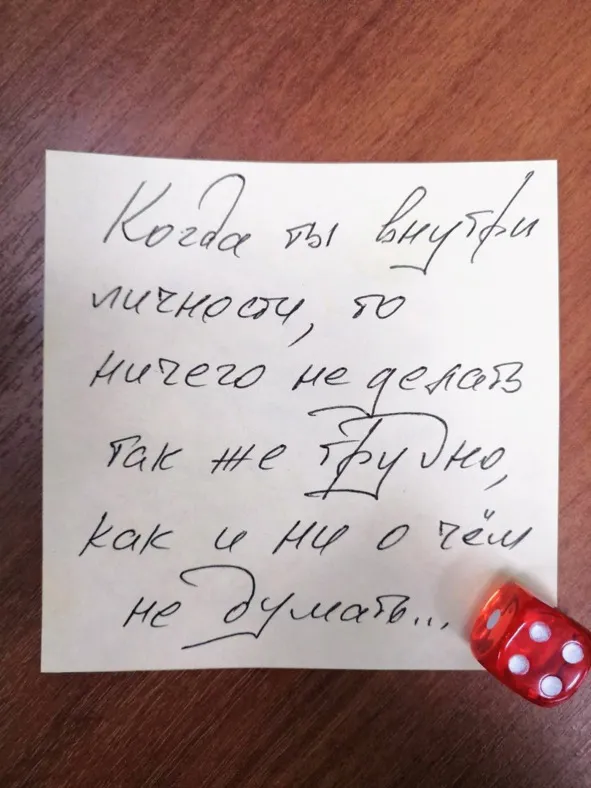 Когда ты внутри
личности, то
ничего не делать
так же трудно,
как и ни о чём
не думать...